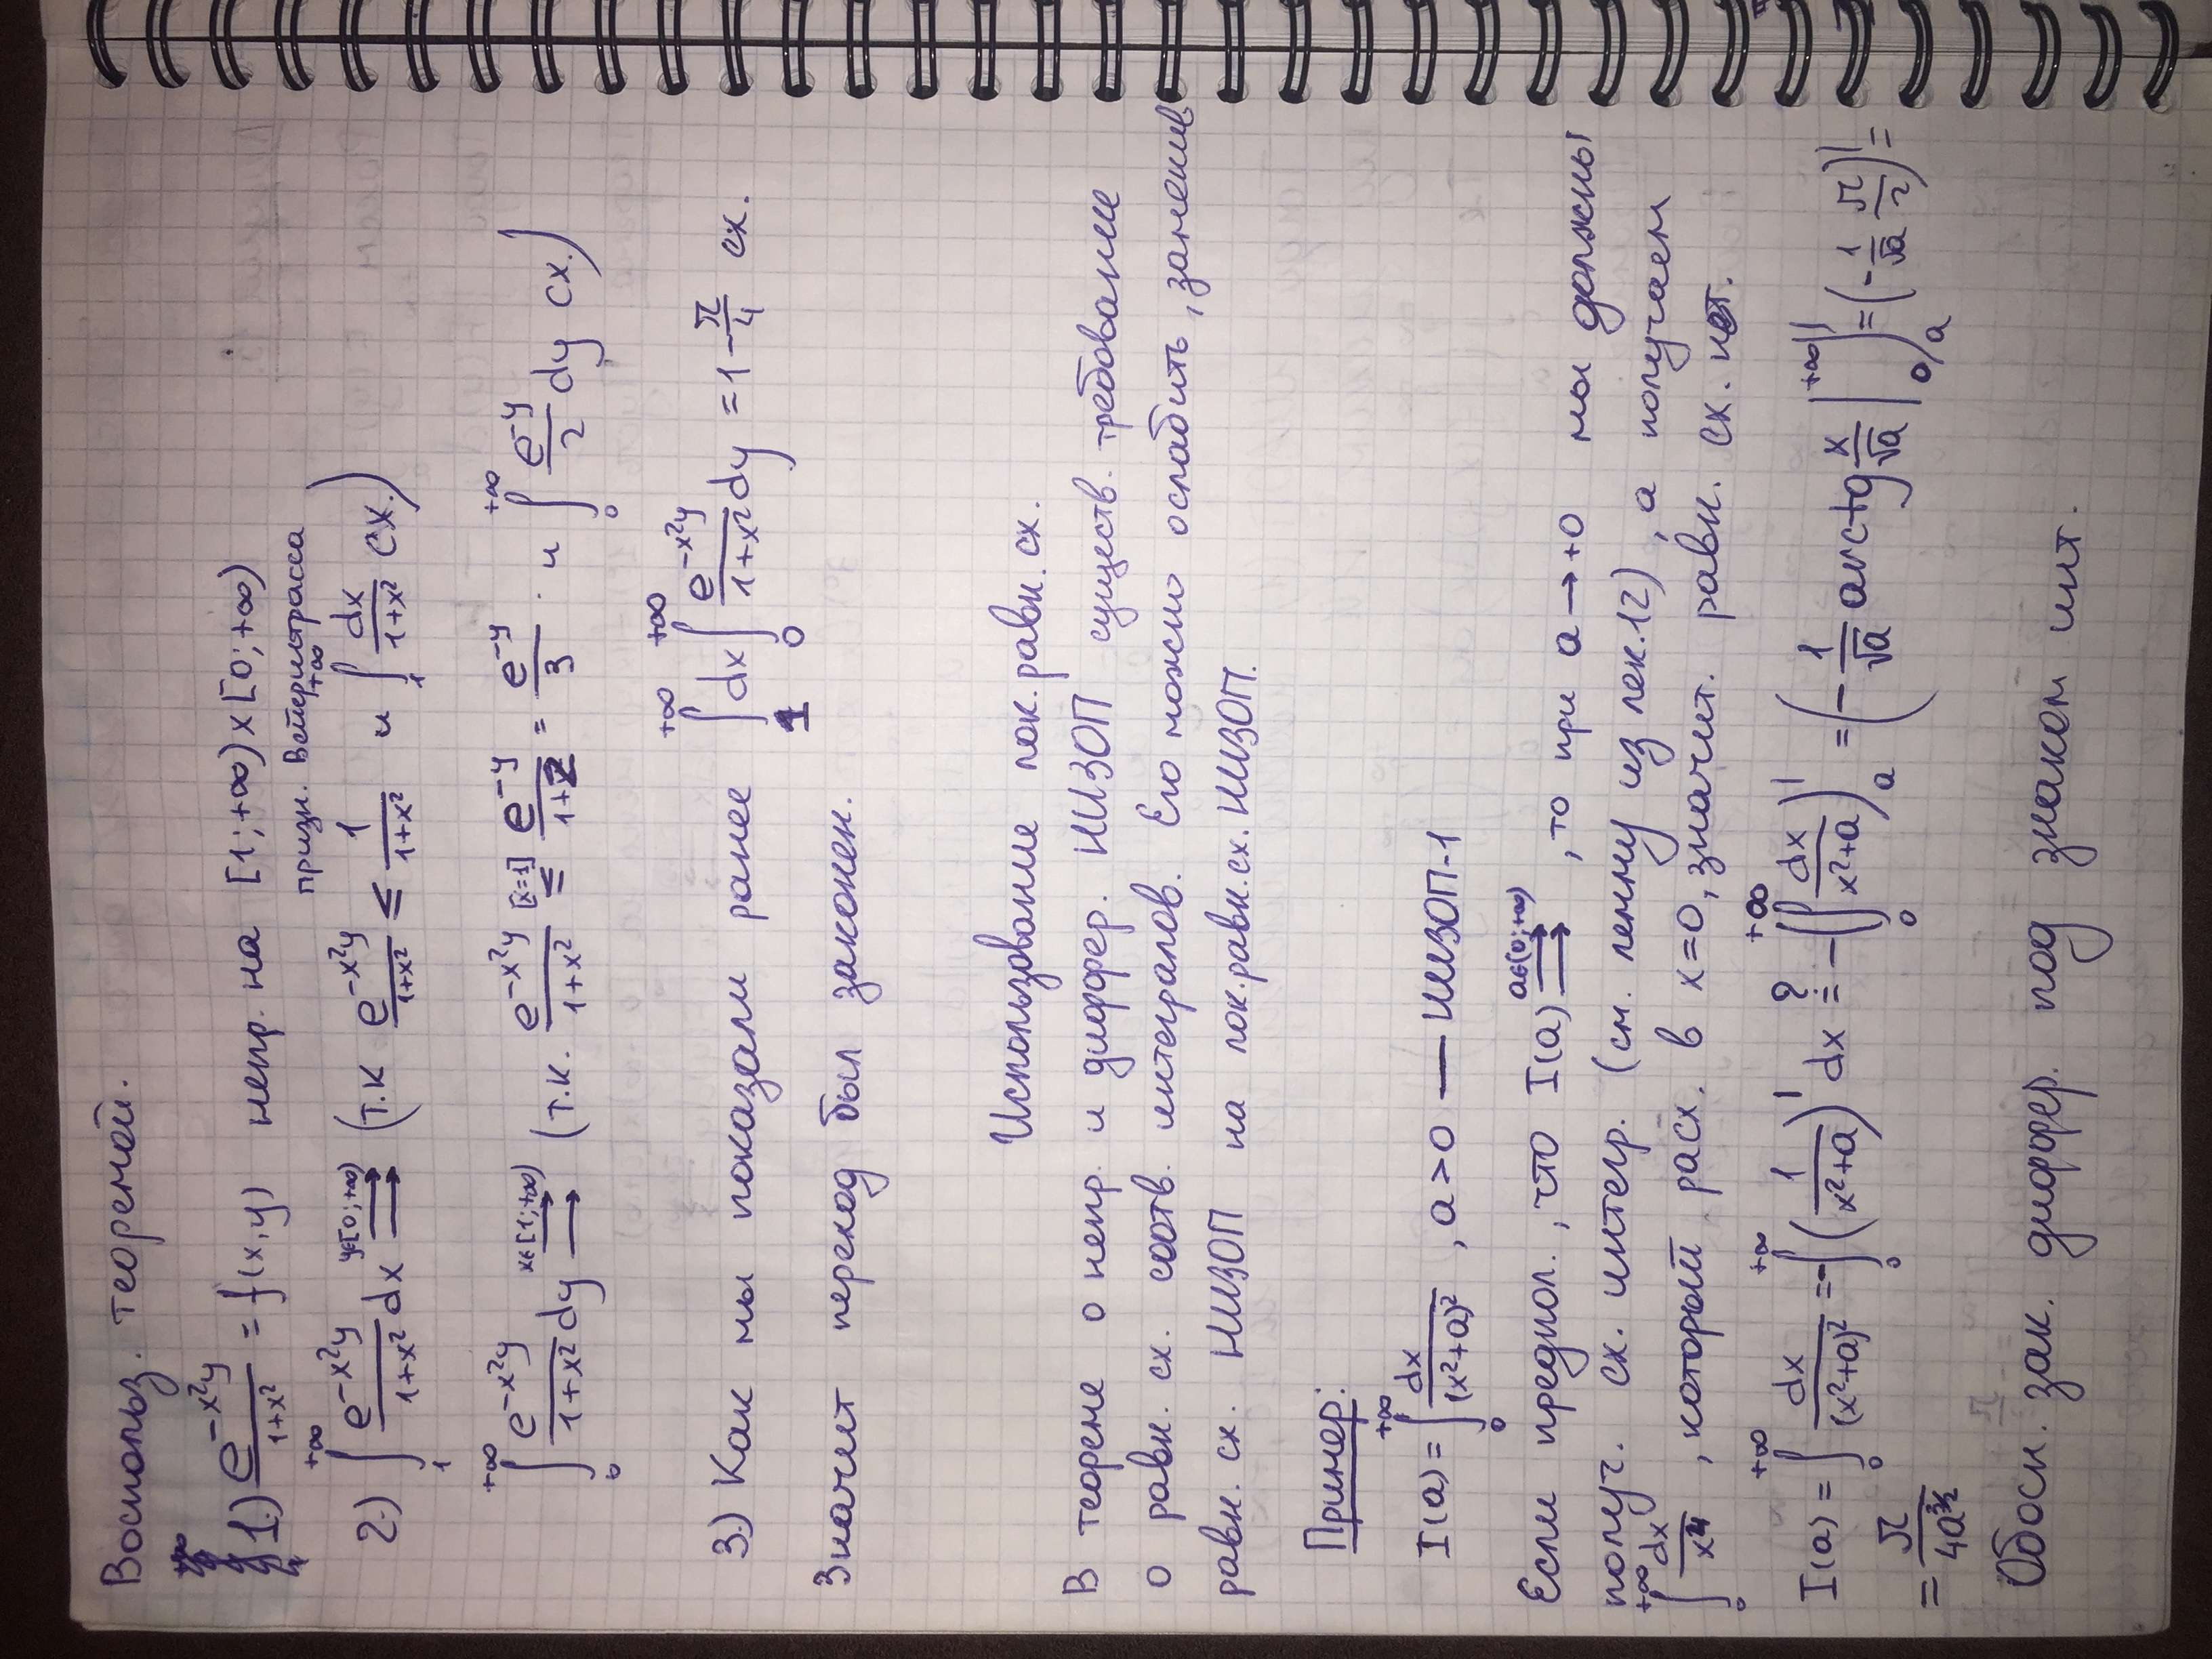 Воспольз. теоремой.
1.) e^{-x²y}/(1+x²) = f(x,y) непр. на [1;+∞)×[0;+∞)
призн. Вейерштрасса
2.) ∫_1^{+∞} e^{-x²y}/(1+x²) dx ⇉^{y∈[0;+∞)} (т.к e^{-x²y}/(1+x²) ≤ 1/(1+x²) и ∫_1^{+∞} dx/(1+x²) сх.)
∫_0^{+∞} e^{-x²y}/(1+x²) dy ⇉^{x∈[1;+∞)} (т.к. e^{-x²y}/(1+x²) ≤^{[x=1]} e^{-y}/(1+2) = e^{-y}/3 · и ∫_0^{+∞} e^{-y}/2 dy сх.)
3.) Как мы показали ранее ∫_1^{+∞} dx ∫_0^{+∞} e^{-x²y}/(1+x²) dy = 1 - π/4 сх.
Значит переход был законен.
Использование лок. равн. сх.
В теореме о непр. и диффер. НИЗОП существ. требование
о равн. сх. соотв. интегралов. Его можно ослабить, заменив
равн. сх. НИЗОП на лок. равн. сх. НИЗОП.
Пример:
I(a) = ∫_0^{+∞} dx/(x²+a)² , a>0 — НИЗОП-1
Если предпол., что I(a) ⇉^{a∈(0;+∞)} , то при a → +0 мы должны
получ. сх. интегр. (см. лемму из лек.12), а получаем
∫_0^{+∞} dx/x⁴ , который расх. в x=0, значит. равн. сх. нет.
I(a) = ∫_0^{+∞} dx/(x²+a)² = -∫_0^{+∞} (1/(x²+a))' dx =^? -(∫_0^{+∞} dx/(x²+a))'_a = (-1/√a arctg x/√a |_0^{+∞})'_a = (-1/√a π/2)' =
= π/(4a^{3/2})
Обосн. зак. диффер. под знаком инт.